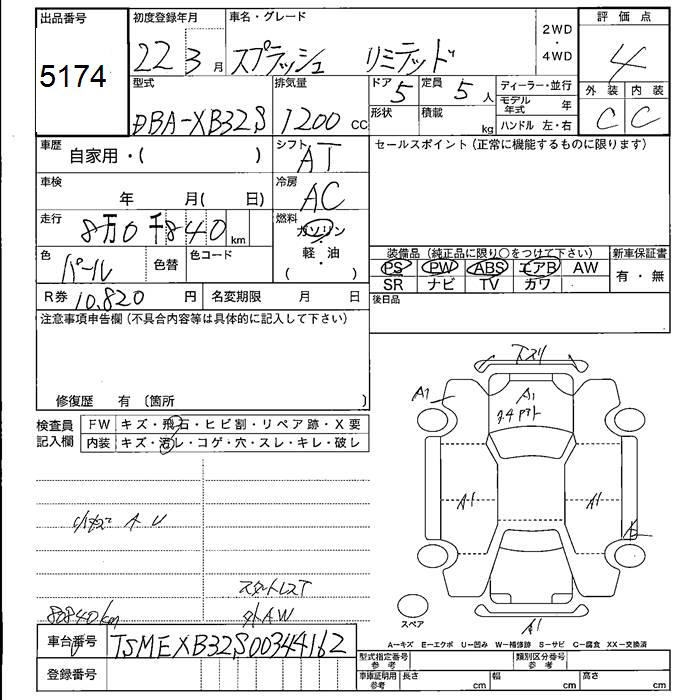 出品番号
5174
初度登録年月
22 3月
車名・グレード
スプラッシュ リミテッド
2WD
・
4WD
評価点
4
型式
DBA-XB32S
排気量
1200 cc
ドア 5
定員 5人
形状
積載 kg
ディーラー・並行
モデル年式 年
ハンドル 左・右
外装 内装
C C
車歴
自家用・( )
シフト
AT
セールスポイント(正常に機能するものに限ります)
車検
年 月( 日)
冷房
AC
走行
8万0千840 km
燃料
ガソリン
・
軽・油
・
( )
色
パール
色替
色コード
装備品(純正品に限り○をつけて下さい)
新車保証書
PS PW ABS エアB AW
有・無
SR ナビ TV カワ
R券 10,820 円
名変期限 月 日
後日品
注意事項申告欄(不具合内容等は具体的に記入して下さい)
修復歴 有〔箇所 〕
検査員
記入欄
FW キズ・飛石・ヒビ割・リペア跡・X要
内装 キズ・汚レ・コゲ・穴・スレ・キレ・破レ
A・U
スタットレスT
外AW
80840km
A1
A1
A1
A1
A1
スペア
A-キズ E-エクボ U-凹み W-補修跡 S-サビ C-腐食 XX-交換済
車台番号
TSMEXB32S00344162
登録番号
型式指定番号
参考
類別区分番号
参考
車庫証明用
参考
長さ cm
幅 cm
高さ cm